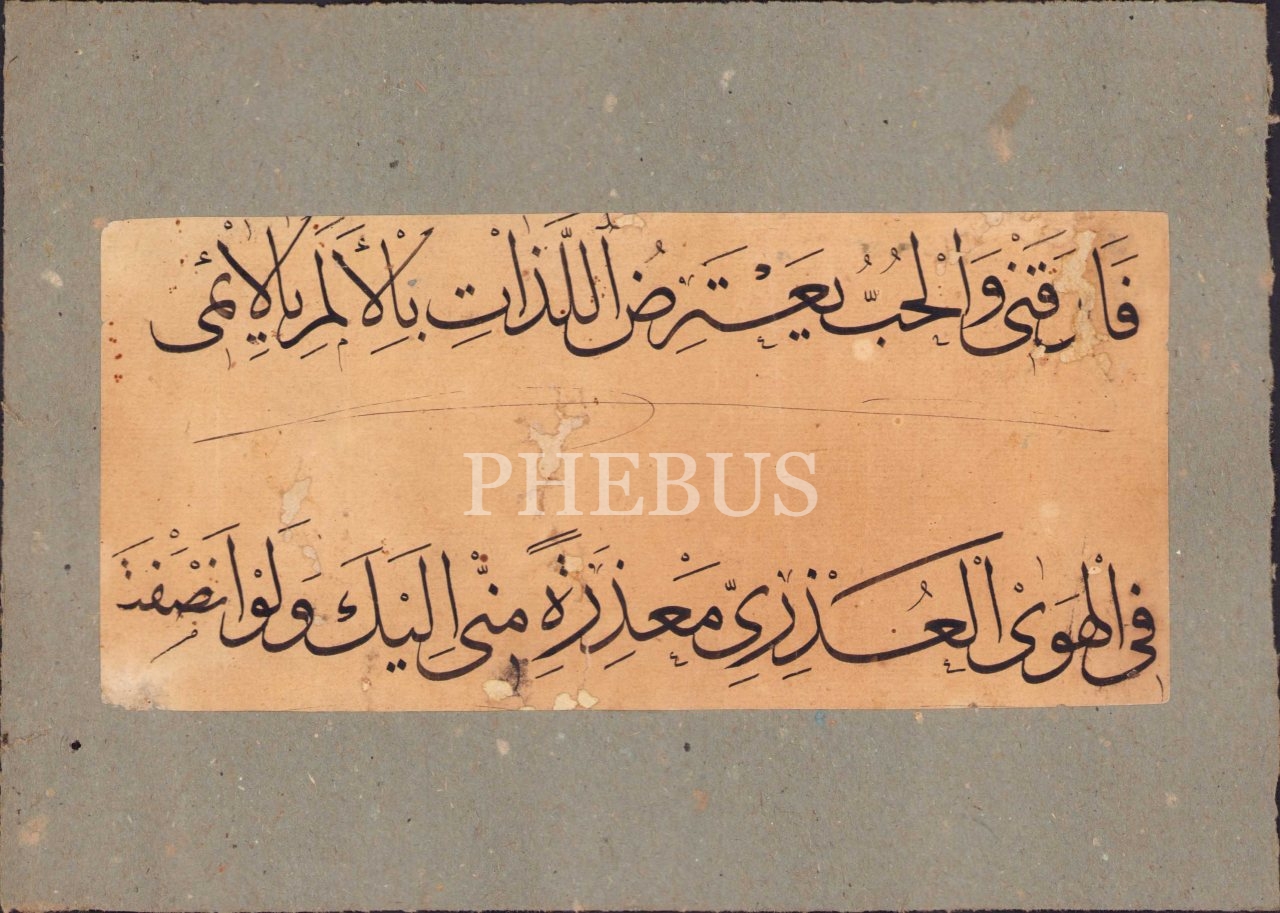 فَارَقَنْى وَالْحُبُّ يَعْتَرِضُ اللَّذَاتِ بِالْأَلَمِ يَالَائِمِى
PHEBUS
فِى الْهَوَى الْعُذْرِىِّ مَعْذِرَةً مِنِّى اِلَيْكَ وَلَوْ انْصَفْتَ